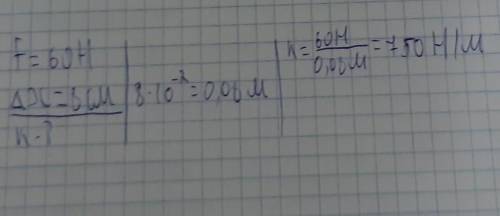 F = 60Н
Δx = 8см
k - ?
8·10⁻² = 0,08м
k = 60Н / 0,08м = 750 Н/м